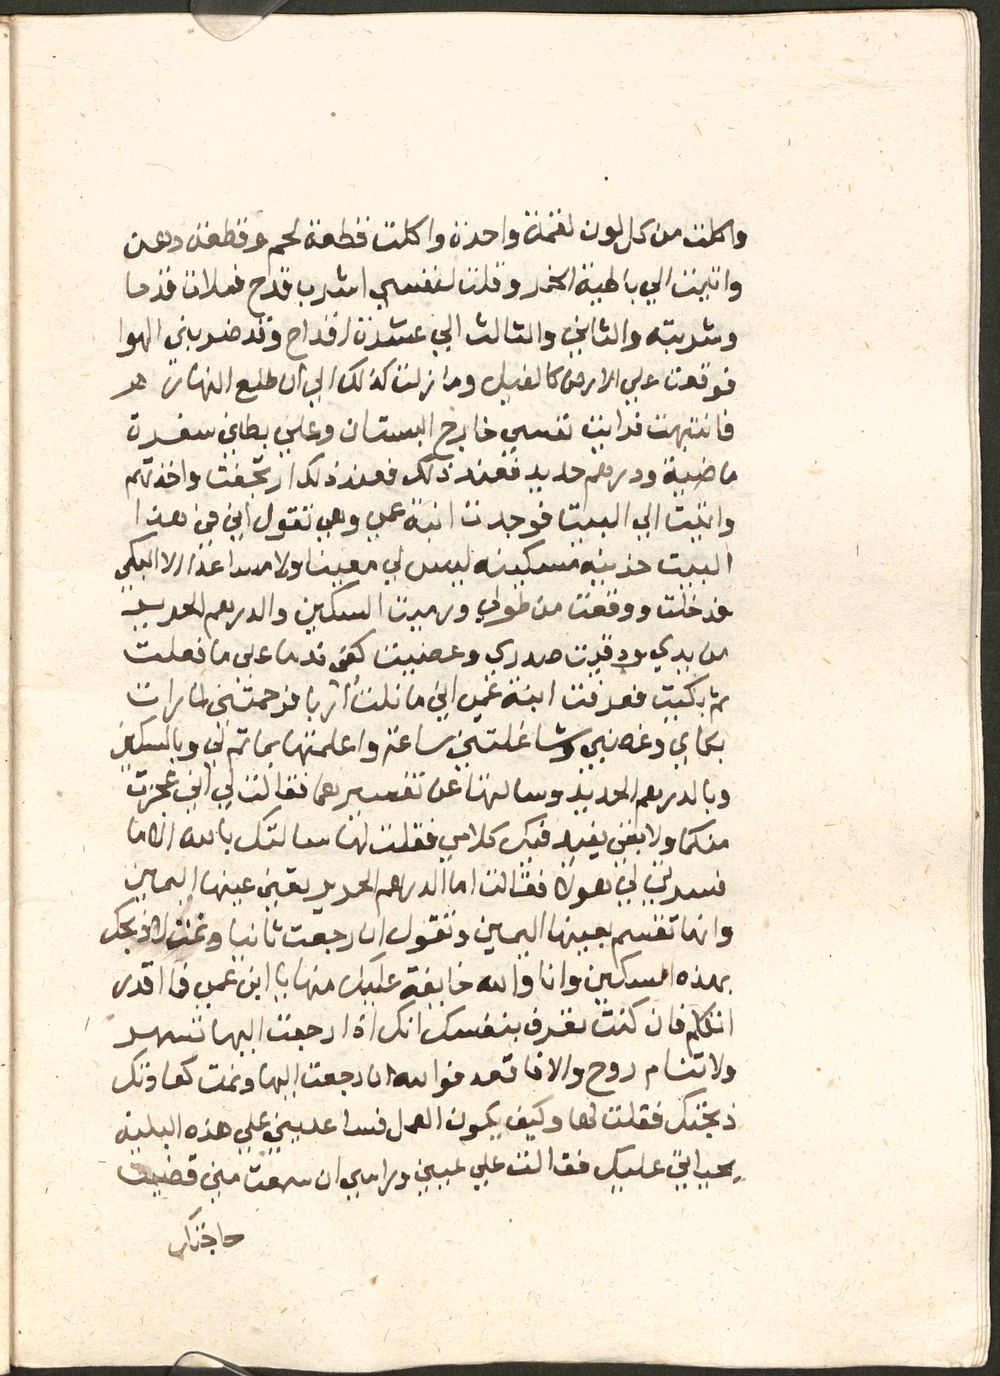 واكلت من كل لون لقمة واحدة واكلت قطعة لحم وقطعة دهن
واتيت الي باطية الخمر وقلت لنفسي اشرب قدح فملات قدحا
وشربته والثاني والثالث الي عشرة اقداح وقد ضربني الهوا
فوقعت علي الارض كالقتيل وما زلت كذلك الي ان طلع النهار
فانتبهت فرايت نفسي خارج البستان وعلي بطني سفرة
ماضية ودرهم حديد فعند ذلك فعند ذلك ارتجفت واخذتهم
واتيت الي البيت فوجدت ابنة عمي وهي تقول اني في هذا
البيت حزينة مسكينة ليس لي معينا ولا مساعدا الا البكي
فدخلت ووقعت من طولي ورميت السكين والدرهم الحديد
من يدي ودقيت صدري وعضيت كفي ندما علي ما فعلت
ثم بكيت فعرفت ابنة عمي اني ما نلت اربا فرحمتني لما رات
بكاي وغصتي وشاغلتني ساعة واعلمتها بما تم لي وبالسكين
وبالدرهم الحديد وسالتها عن تفسيرهما فقالت لي اني عجزت
منكما ولا بقي يفيد فيك كلامي فقلت لها سالتك بالله الا ما
فسرتي لي هولا فقالت اما الدرهم الحديد يعني عينها اليمين
وانها تقسم بعينها اليمين وتقول ان رجعت ثانيا ونمت لاذبحك
بهذه السكين وانا والله خايفة عليك منها يا ابن عمي فما اقدر
اتكلم فان كنت تعرف بنفسك انك اذا رجعت اليها تسهر
ولا تنام روح والا فاقعد فوالله ان رجعت اليها ونمت كعادتك
ذبحتك فقلت لها وكيف يكون العمل فساعديني علي هذه البلية
بحياتي عليك فقالت علي عيني وراسي ان سمعت مني قضيت
حاجتك